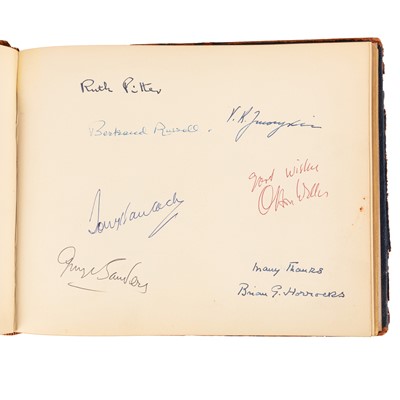 Ruth Pitter
Bertrand Russell.
V. K. Zworykin
Tony Hancock
good wishes
Orson Welles
George Sanders
many Thanks
Brian G. Horrocks